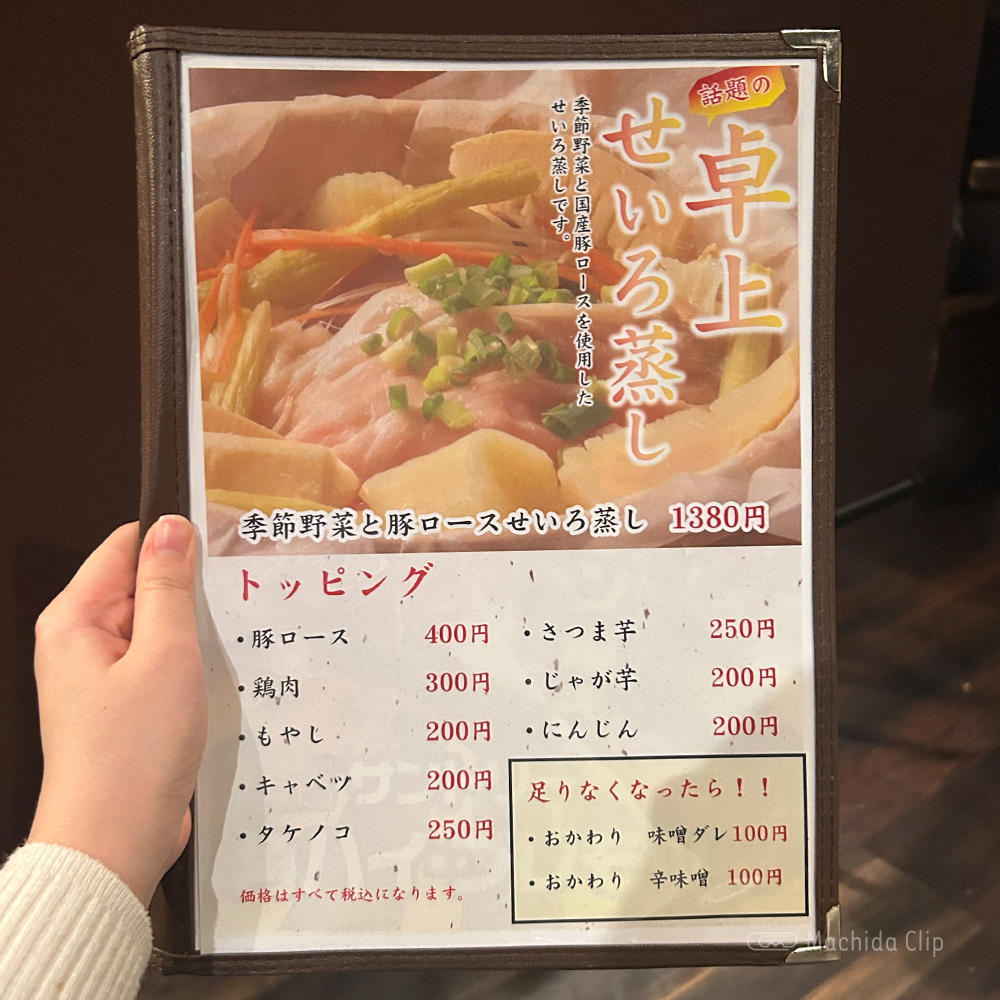 話題の
卓上
せいろ蒸し
季節野菜と国産豚ロースを使用した
せいろ蒸しです。
季節野菜と豚ロースせいろ蒸し 1380円
トッピング
・豚ロース 400円
・鶏肉 300円
・もやし 200円
・キャベツ 200円
・タケノコ 250円
・さつま芋 250円
・じゃが芋 200円
・にんじん 200円
足りなくなったら！！
・おかわり 味噌ダレ100円
・おかわり 辛味噌 100円
価格はすべて税込になります。
Machida Clip